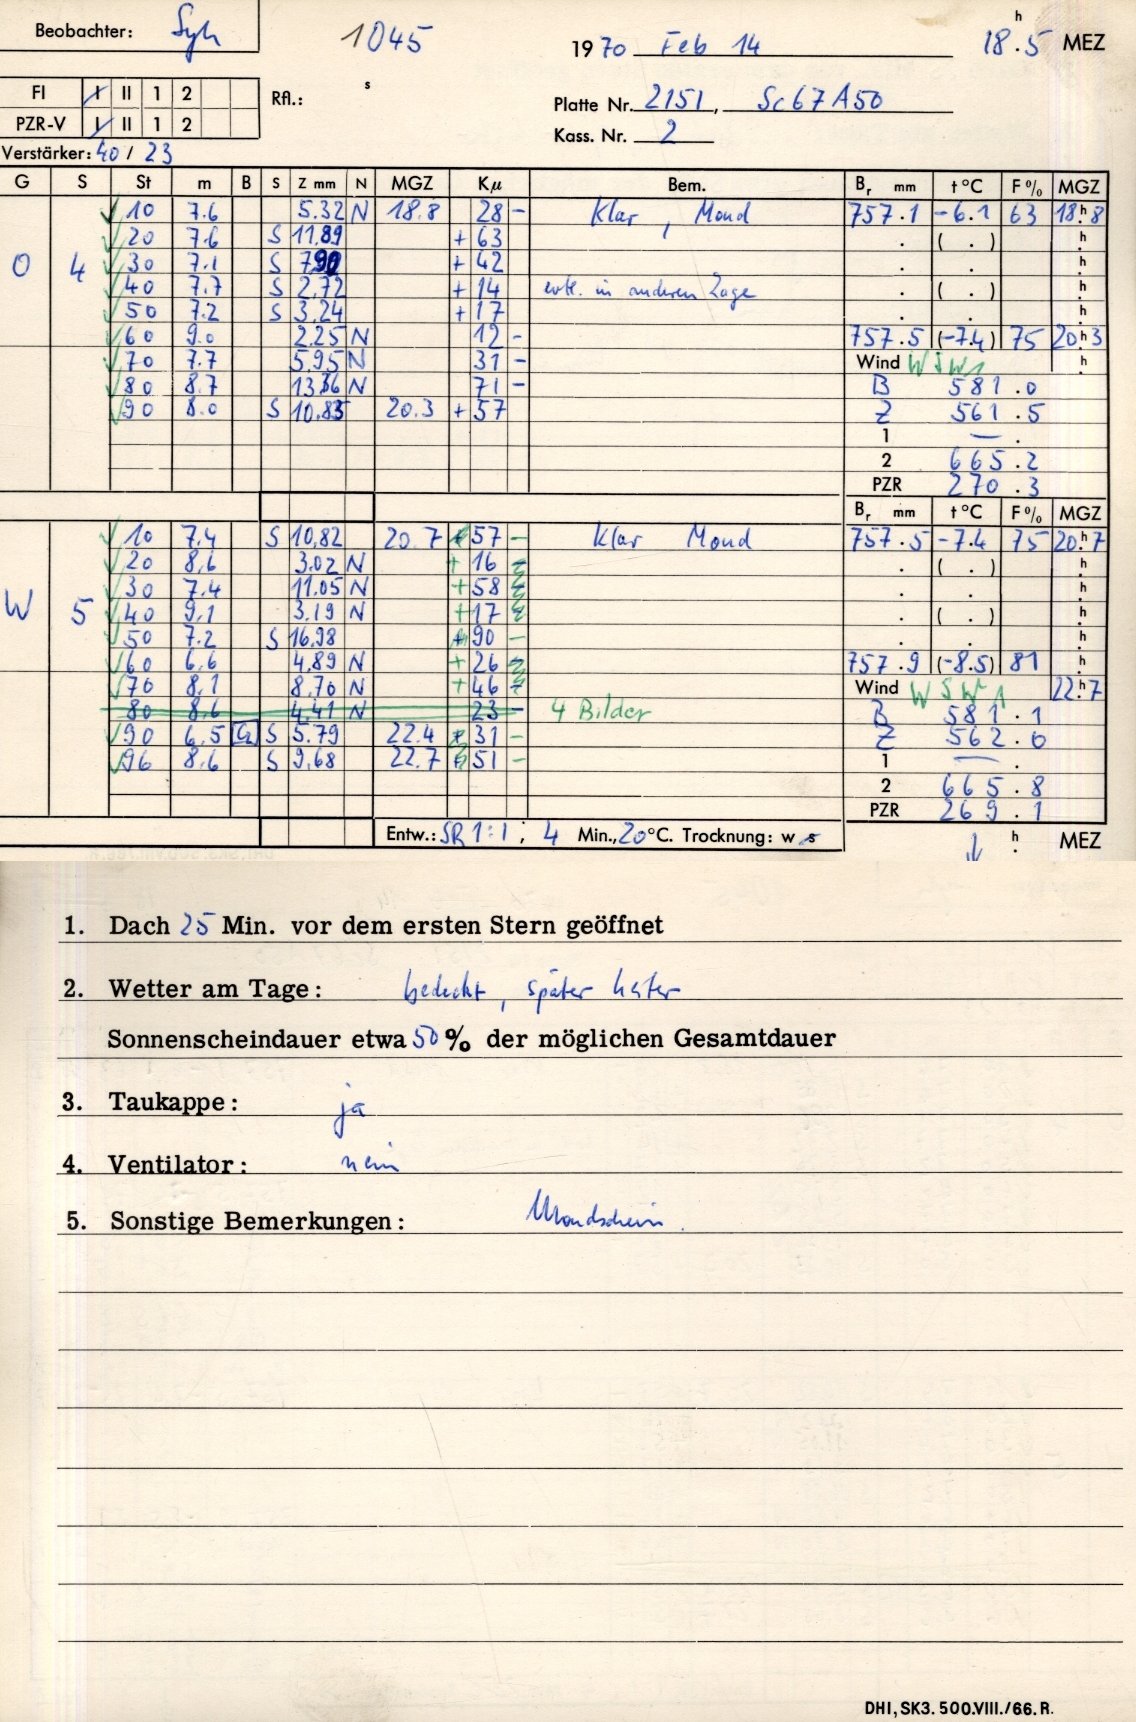 Beobachter: Syh 1045 1970 Feb 14 18 h . 5 MEZ
FI I II 1 2 Rfl.: s
Platte Nr. 2151, Sc67A50
PZR-V I II 1 2
Kass. Nr. 2
Verstärker: 40 / 23
G S St m B S Z mm N MGZ Kμ Bem. Br mm t °C F % MGZ
10 7.6 5.32 N 18.8 28 - Klar, Mond 757.1 -6.1 63 18 h 8
20 7.6 S 11.89 + 63 . ( . ) h
O 4 30 7.1 S 7.90 + 42 . . h
40 7.7 S 2.72 + 14 evtl. in anderen Lage . ( . ) h
50 7.2 S 3.24 + 17 . . h
60 9.0 2.25 N 12 - 757.5 (-7.4) 75 20 h 3
70 7.7 5.95 N 31 - Wind WSW1 h
80 8.7 13.36 N 71 - B 581.0
90 8.0 S 10.83 20.3 + 57 Z 561.5
1 — .
2 665.2
PZR 270.3
Br mm t °C F % MGZ
10 7.4 S 10,82 20.7 + 57 - Klar Mond 757.5 -7.4 75 20 h 7
20 8,6 3.02 N + 16 . ( . ) h
30 7.4 11.05 N + 58 . . h
W 5 40 9,1 3.19 N + 17 . ( . ) h
50 7.2 S 16,98 90 - . . h
60 6.6 4,89 N + 26 757.9 (-8.5) 81 h
70 8,1 8,70 N + 46 Wind WSW 1 22 h 7
80 8,6 4,41 N 23 - 4 Bilder B 581.1
90 6.5 S 5.79 22.4 31 - Z 562.0
96 8,6 S 9,68 22.7 51 - 1 — .
2 665.8
PZR 269.1
Entw.: SR 1:1 ; 4 Min., 20 °C. Trocknung: w s h . MEZ
1. Dach 25 Min. vor dem ersten Stern geöffnet
2. Wetter am Tage: bedeckt, später heiter
Sonnenscheindauer etwa 50 % der möglichen Gesamtdauer
3. Taukappe: ja
4. Ventilator: nein
5. Sonstige Bemerkungen: Mondschein.
DHI, SK3. 500.VIII./66. R.